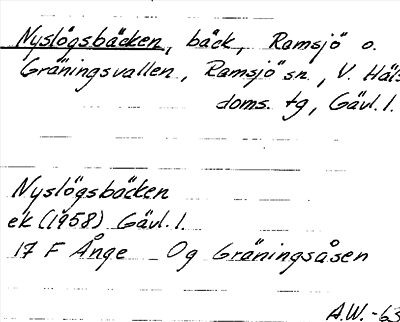 Nyslögsbäcken, bäck, Ramsjö o.
Gräningsvallen, Ramsjö sn, V. Häls
doms. tg, Gävl. l.
Nyslögsbäcken
ek (1958) Gävl. l.
17 F Ånge Og Gräningsåsen
A.W. -63